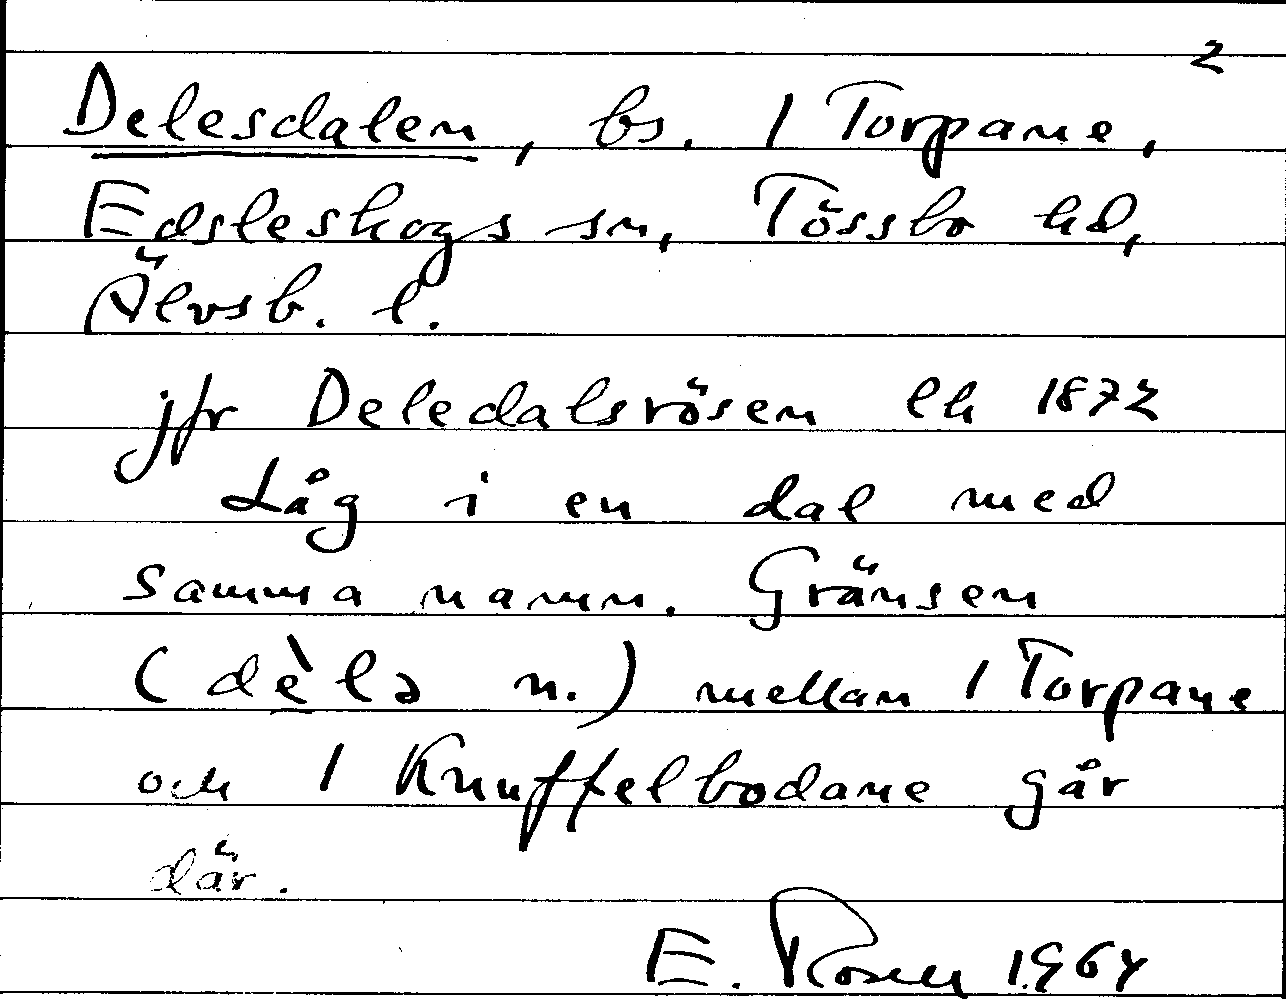 2
Delesdalen, bs. 1 Torpane,
Edsleskogs sn, Tössbo hd,
Älvsb. l.
jfr Deledalsrösen lh 1872
Låg i en dal med
samma namn. Gränsen
(dè̱lə n.) mellan 1 Torpane
och 1 Knuffelbodane går
där.
E. Rosell 1964